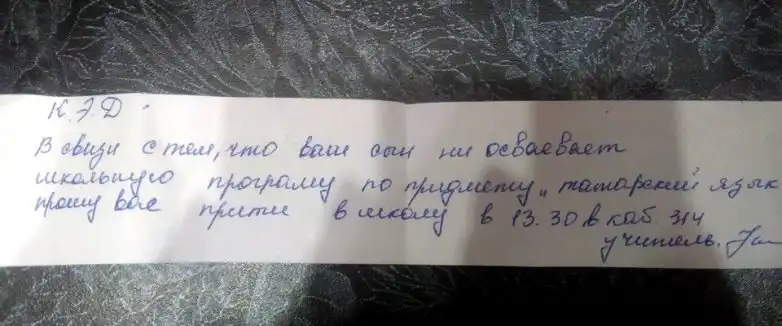 К.Э.Д.
В связи с тем, что ваш сын ни осваевает
школьную програму по придмету „татарский язык
прошу вас прити в школу в 13.30 в каб 314
учитель.